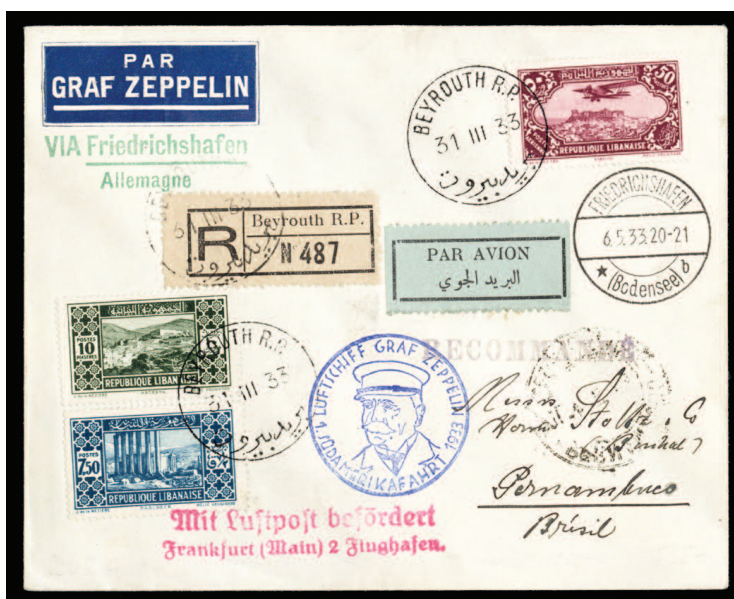 PAR
GRAF ZEPPELIN
VIA Friedrichshafen
Allemagne
BEYROUTH R.P.
31 III 33
بيروت
50
REPUBLIQUE LIBANAISE
FRIEDRICHSHAFEN
6.5.33.20-21
★ (Bodensee) b
31 III 33
R
Beyrouth R.P.
N 487
PAR AVION
البريد الجوي
POSTES
10
PIASTRES
REPUBLIQUE LIBANAISE
BEYROUTH R.P.
31 III 33
POSTES
7,50
REPUBLIQUE LIBANAISE
LUFTSCHIFF GRAF ZEPPELIN
1. SÜDAMERIKAFAHRT 1933
RECOMMANDÉ
Herm Stoltz & Co
Pernambuco
Brésil
Mit Luftpost befördert
Frankfurt (Main) 2 Flughafen.